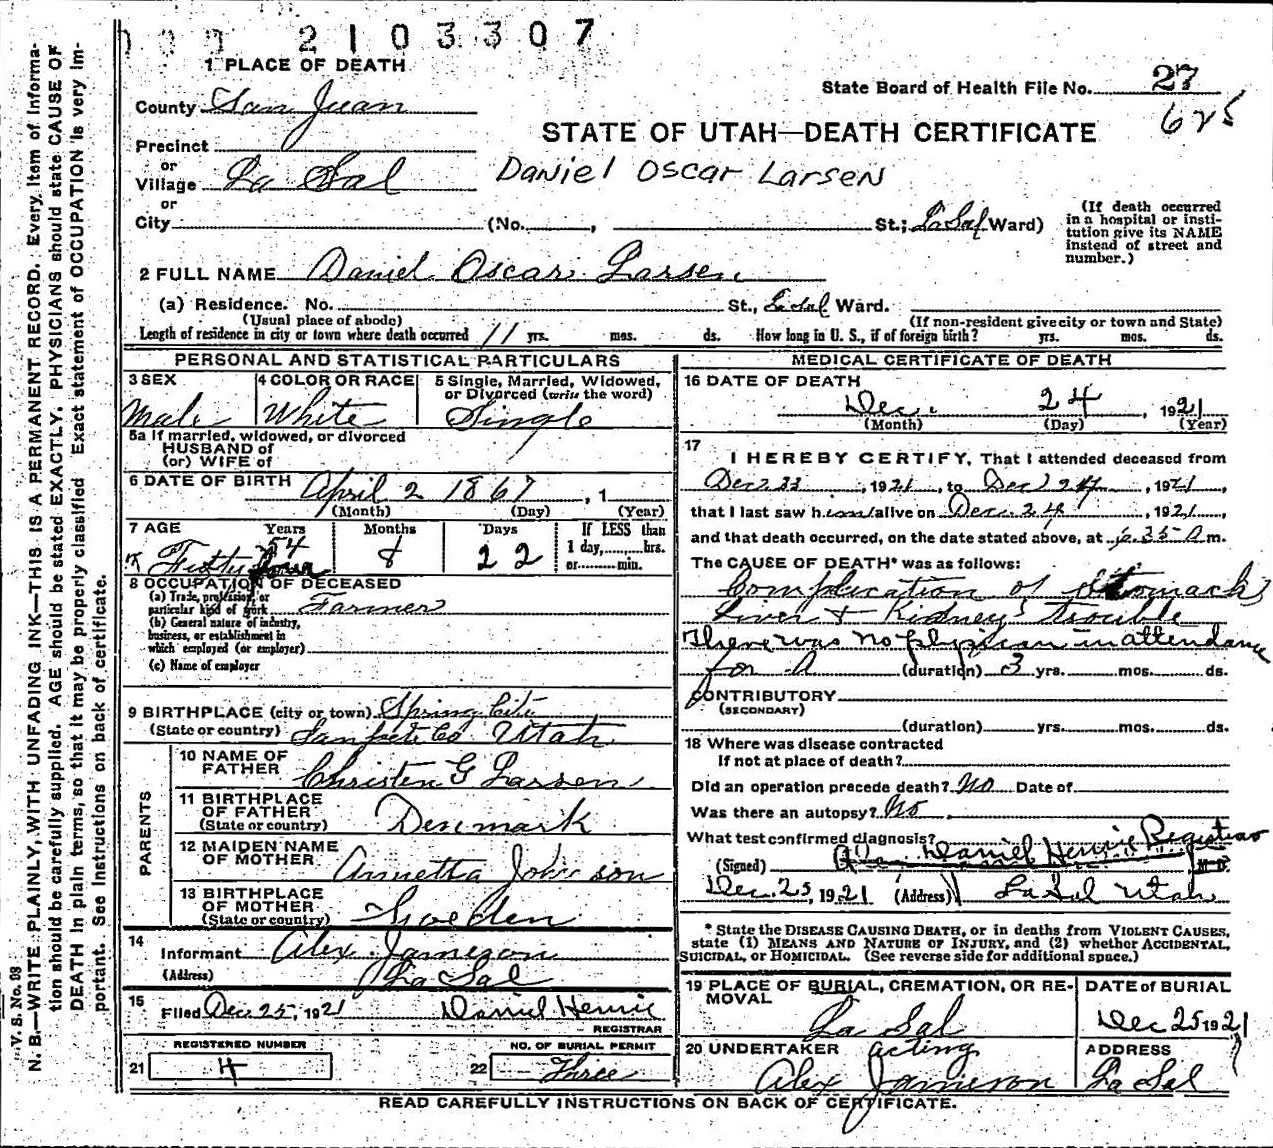 2103307
1 PLACE OF DEATH
State Board of Health File No. 27
County San Juan
625
STATE OF UTAH—DEATH CERTIFICATE
Precinct
or
Village La Sal
Daniel Oscar Larsen
or
City (No. , St.; La Sal Ward)
(If death occurred in a hospital or insti-
tution give its NAME
instead of street and
number.)
2 FULL NAME Daniel Oscar Larsen
(a) Residence. No. St., La Sal Ward.
(Usual place of abode) (If non-resident give city or town and State)
Length of residence in city or town where death occurred 11 yrs. mos. ds. How long in U. S., if of foreign birth? yrs. mos. ds.
PERSONAL AND STATISTICAL PARTICULARS
3 SEX
Male
4 COLOR OR RACE
White
5 Single, Married, Widowed,
or Divorced (write the word)
Single
5a If married, widowed, or divorced
HUSBAND of
(or) WIFE of
6 DATE OF BIRTH April 2 1867 , 1
(Month) (Day) (Year)
7 AGE Years Months Days If LESS than
54
Fifty four 8 22 1 day, hrs.
or min.
8 OCCUPATION OF DECEASED
(a) Trade, profession, or
particular kind of work Farmer
(b) General nature of industry,
business, or establishment in
which employed (or employer)
(c) Name of employer
9 BIRTHPLACE (city or town) Spring City
(State or country) Sanpete Co Utah
PARENTS
10 NAME OF
FATHER Christen G Larsen
11 BIRTHPLACE
OF FATHER
(State or country) Denmark
12 MAIDEN NAME
OF MOTHER Annetta Johnson
13 BIRTHPLACE
OF MOTHER
(State or country) Sweden
14
Informant Alex Jameson
(Address) La Sal
15
Filed Dec 25, 1921 Daniel Henrie
REGISTRAR
REGISTERED NUMBER
21 4
NO. OF BURIAL PERMIT
22 Three
MEDICAL CERTIFICATE OF DEATH
16 DATE OF DEATH
Dec. 24, 1921
(Month) (Day) (Year)
17
I HEREBY CERTIFY, That I attended deceased from
, 1921, to Dec 24, 1921,
that I last saw him alive on Dec. 24, 1921,
and that death occurred, on the date stated above, at 6.35 A m.
The CAUSE OF DEATH* was as follows:
Complication of Stomack
Liver & Kidney trouble
There was no physician in attendance
for A (duration) 3 yrs. mos. ds.
CONTRIBUTORY
(SECONDARY)
(duration) yrs. mos. ds.
18 Where was disease contracted
If not at place of death?
Did an operation precede death? No Date of
Was there an autopsy? No
What test confirmed diagnosis?
(Signed) Daniel Henrie Registrar M. D.
Dec. 25, 1921 (Address) La Sal Utah
* State the DISEASE CAUSING DEATH, or in deaths from VIOLENT CAUSES,
state (1) MEANS AND NATURE OF INJURY, and (2) whether ACCIDENTAL,
SUICIDAL, or HOMICIDAL. (See reverse side for additional space.)
19 PLACE OF BURIAL, CREMATION, OR RE-
MOVAL
La Sal
DATE of BURIAL
Dec 25 1921
20 UNDERTAKER acting
Alex Jameson
ADDRESS
La Sal
READ CAREFULLY INSTRUCTIONS ON BACK OF CERTIFICATE.
V. S. No. 98
N. B.—WRITE PLAINLY, WITH UNFADING INK—THIS IS A PERMANENT RECORD. Every item of informa-
tion should be carefully supplied. AGE should be stated EXACTLY. PHYSICIANS should state CAUSE OF
DEATH in plain terms, so that it may be properly classified. Exact statement of OCCUPATION is very im-
portant. See instructions on back of certificate.